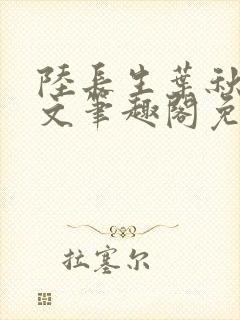 陸長生葉秋
文筆趣閣免
拉塞尔